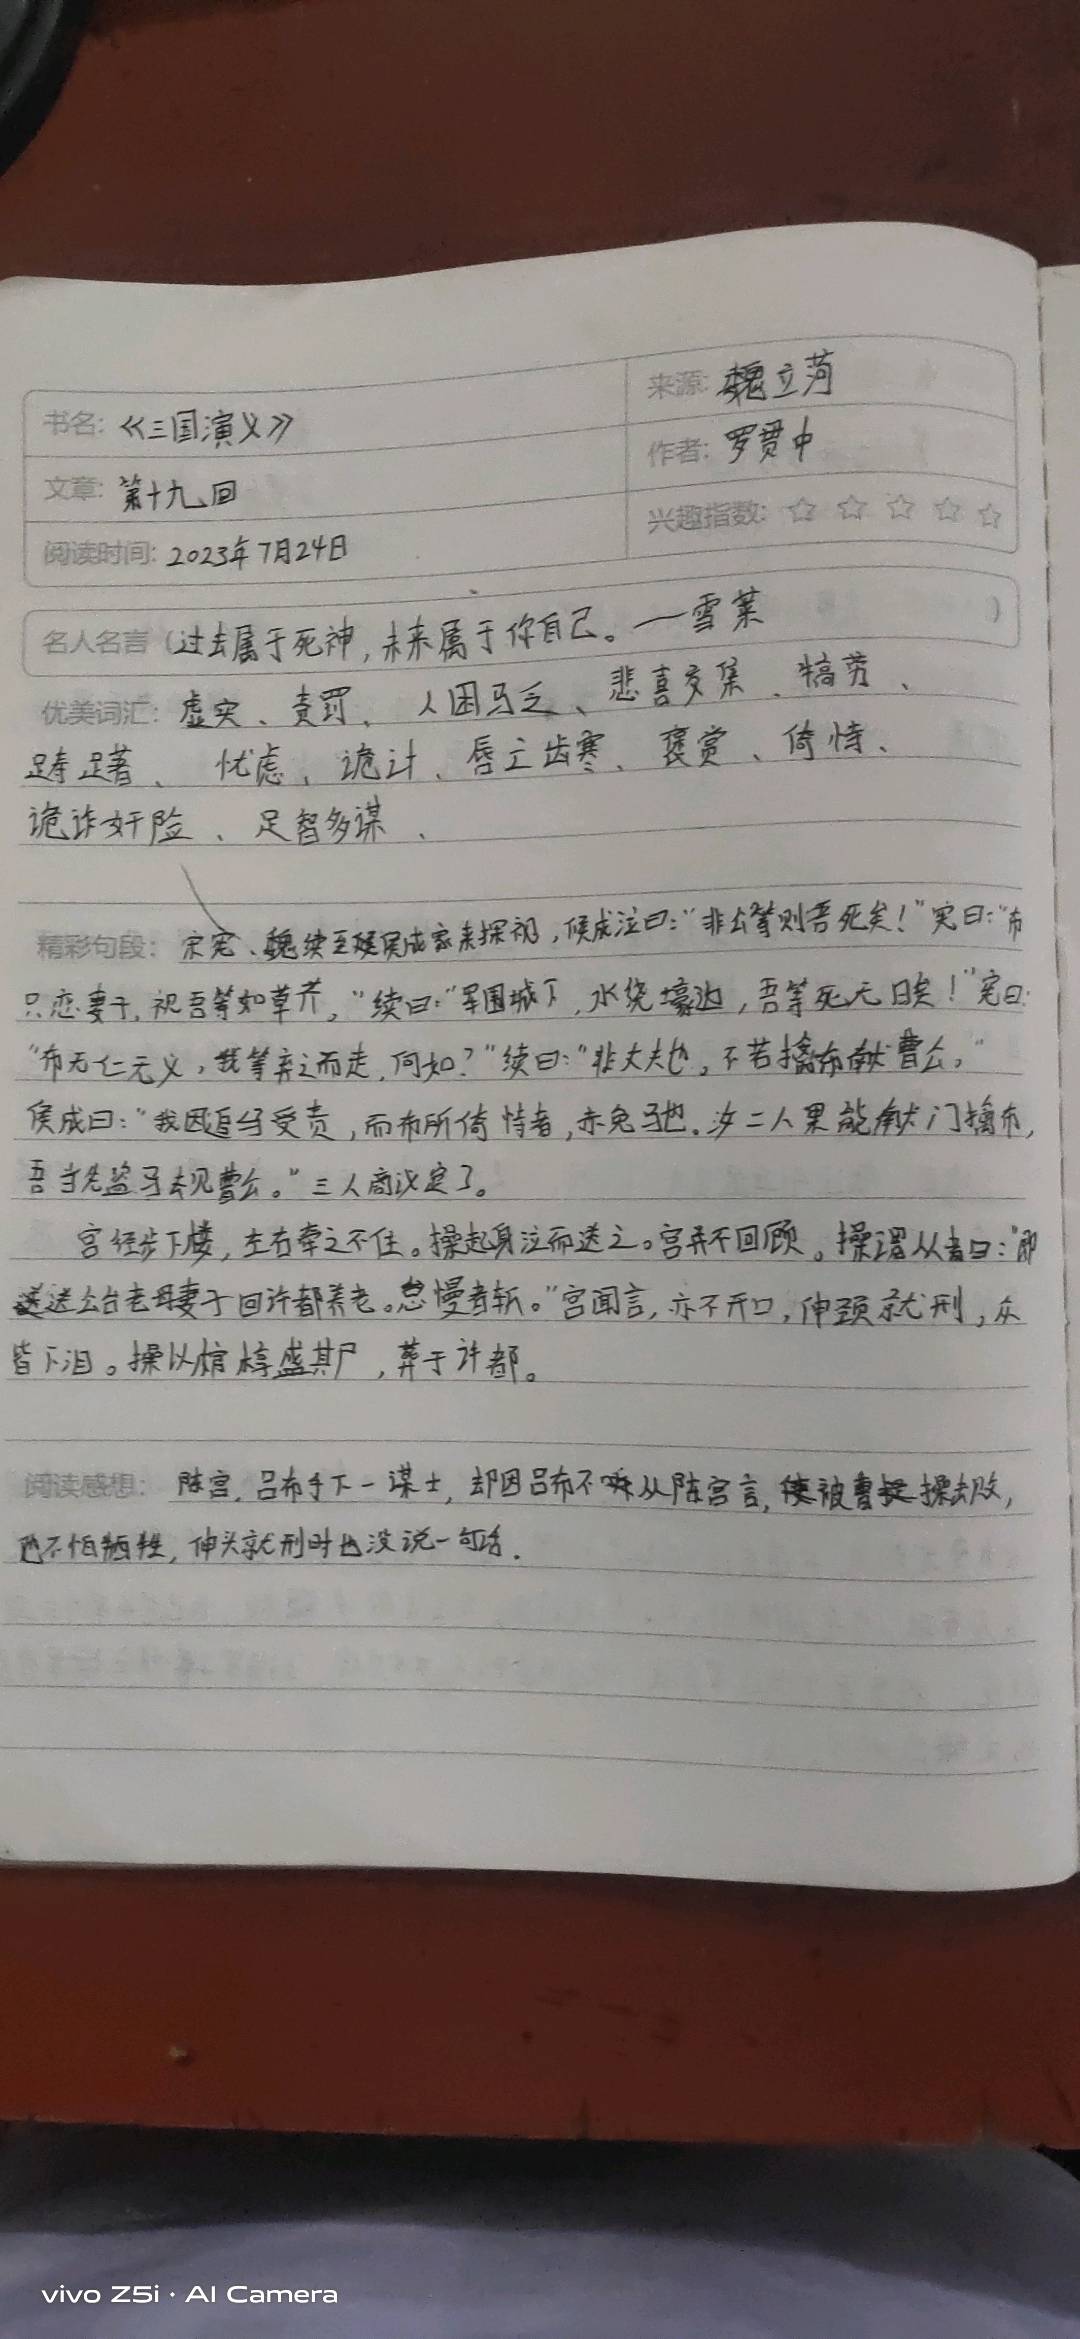 书名: 《三国演义》
来源: 魏立菏
文章: 第十九回
作者: 罗贯中
阅读时间: 2023年7月24日
兴趣指数: ☆ ☆ ☆ ☆ ☆
名人名言（过去属于死神，未来属于你自己。——雪莱 ）
优美词汇: 虚实、责罚、人困马乏、悲喜交集、犒劳、
踌躇、忧虑、诡计、唇亡齿寒、褒赏、倚恃、
诡诈奸险、足智多谋、
精彩句段: 宋宪、魏续至侯成家来探视，侯成泣曰：“非公等则吾死矣！”宪曰：“布
只恋妻子，视吾等如草芥。”续曰：“军围城下，水绕壕边，吾等死无日矣！”宪曰：
“布无仁无义，我等弃之而走，何如？”续曰：“非丈夫也。不若擒布献曹公。”
侯成曰：“我因追马受责，而布所倚恃者，赤兔马也。汝二人果能献门擒布，
吾当先盗马去见曹公。”三人商议定了。
宫径步下楼，左右牵之不住。操起身泣而送之。宫并不回顾。操谓从者曰：“即
送公台老母妻子回许都养老。怠慢者斩。”宫闻言，亦不开口，伸颈就刑，众
皆下泪。操以棺椁盛其尸，葬于许都。
阅读感想: 陈宫，吕布手下一谋士，却因吕布不听从陈宫言，使被曹操击败，
也不怕牺牲，伸头就刑时也没说一句话．
vivo Z5i · AI Camera